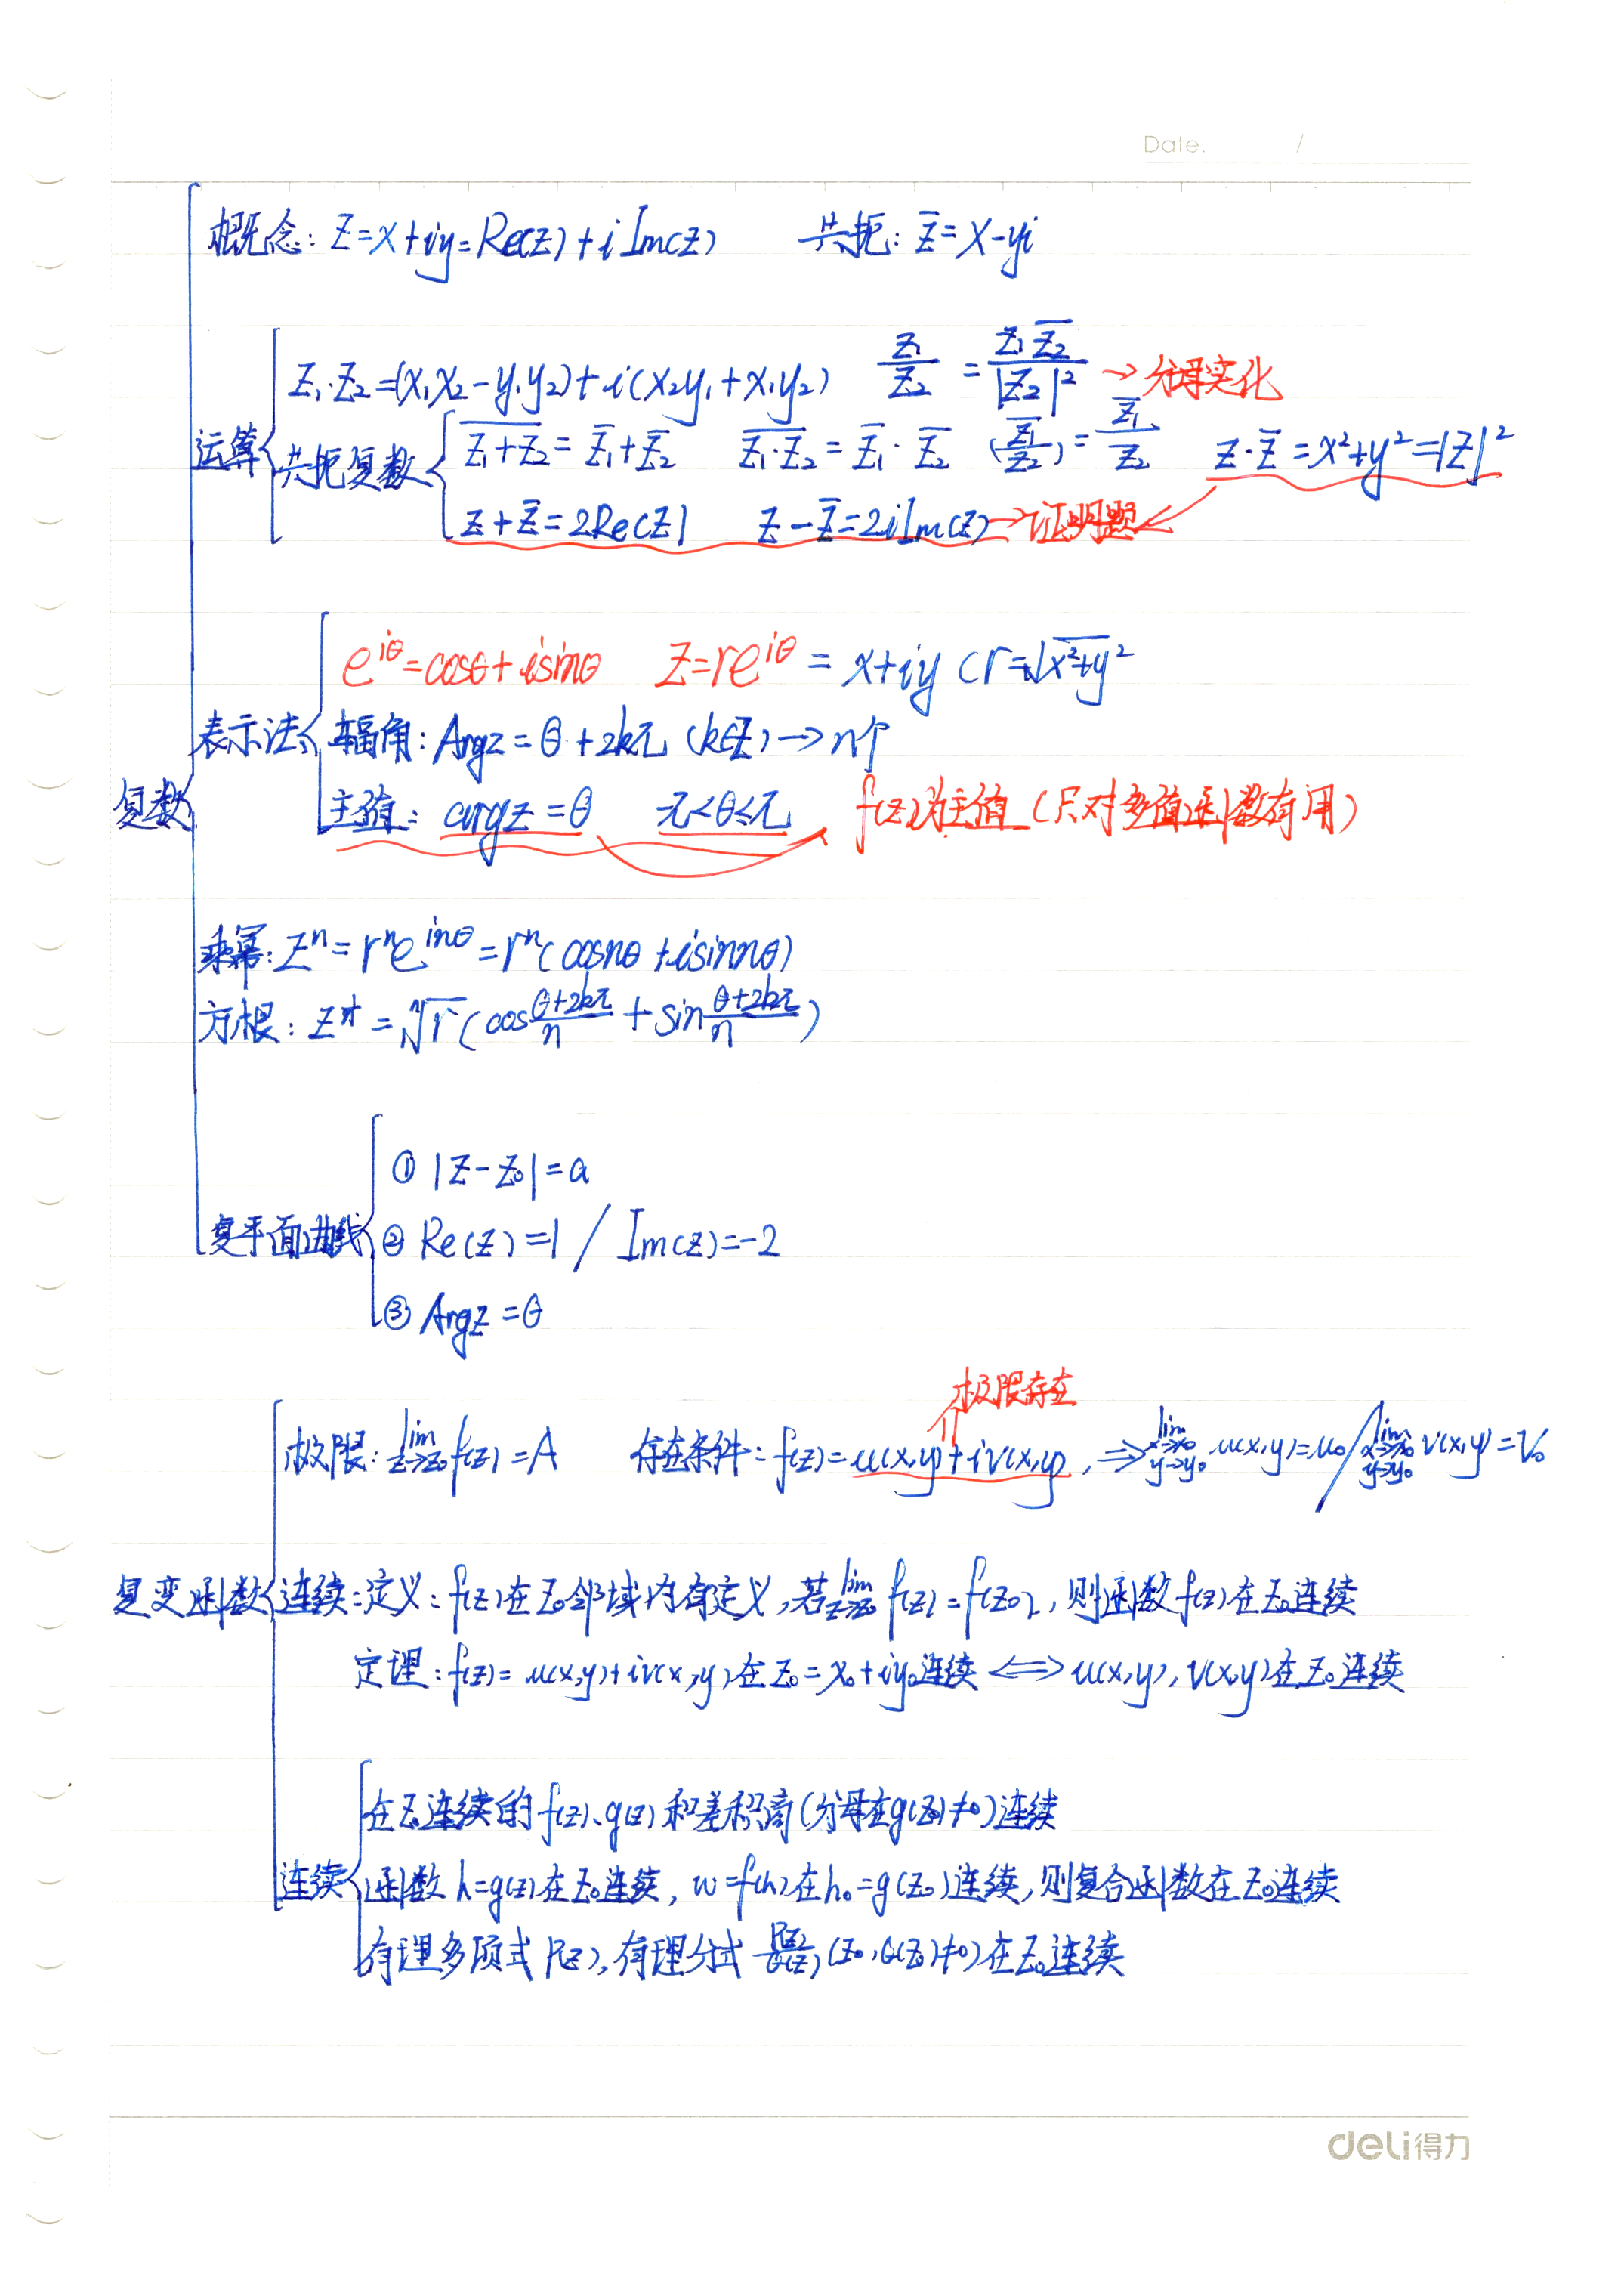 Date. /
概念: z=x+iy=Re(z)+i Im(z) 共扼: z̅=x-yi
z₁·z₂=(x₁x₂-y₁y₂)+i(x₂y₁+x₁y₂) z₁/z₂ = z₁z̅₂/|z₂|² →分母实化
运算
共扼复数 \overline{z₁+z₂}=z̅₁+z̅₂ \overline{z₁·z₂}=z̅₁·z̅₂ \overline{(z₁/z₂)}=z̅₁/z̅₂ z·z̅=x²+y²=|z|²
z+z̅=2Re(z) z-z̅=2iIm(z)→证明题
e^{iθ}=cosθ+isinθ z=re^{iθ}=x+iy (r=√(x²+y²)
表示法 辐角: Argz=θ+2kπ (k∈Z)→n个
复数
主值: argz=θ -π<θ≤π f(z)为主值(只对多值函数有用)
乘幂: zⁿ=rⁿe^{inθ}=rⁿ(cosnθ+isinnθ)
方根: z^{1/n}=ⁿ√r(cos (θ+2kπ)/n + sin (θ+2kπ)/n)
① |z-z₀|=a
复平面曲线 ② Re(z)=1 / Im(z)=-2
③ Argz=θ
极限存在
极限: lim_{z→z₀} f(z)=A 存在条件: f(z)=u(x,y)+iv(x,y), ⇒ lim_{x→x₀ y→y₀} u(x,y)=u₀ / lim_{x→x₀ y→y₀} v(x,y)=v₀
复变函数 连续: 定义: f(z)在z₀邻域内有定义,若lim_{z→z₀} f(z)=f(z₀), 则函数f(z)在z₀连续
定理: f(z)=u(x,y)+iv(x,y)在z₀=x₀+iy₀连续 ⟺ u(x,y), v(x,y)在z₀连续
在z₀连续的f(z)、g(z)和差积商(分母在g(z₀)≠0)连续
连续 函数h=g(z)在z₀连续, w=f(h)在h₀=g(z₀)连续,则复合函数在z₀连续
有理多项式P(z),有理分式 P(z)/Q(z) (z₀,Q(z₀)≠0)在z₀连续
deli得力